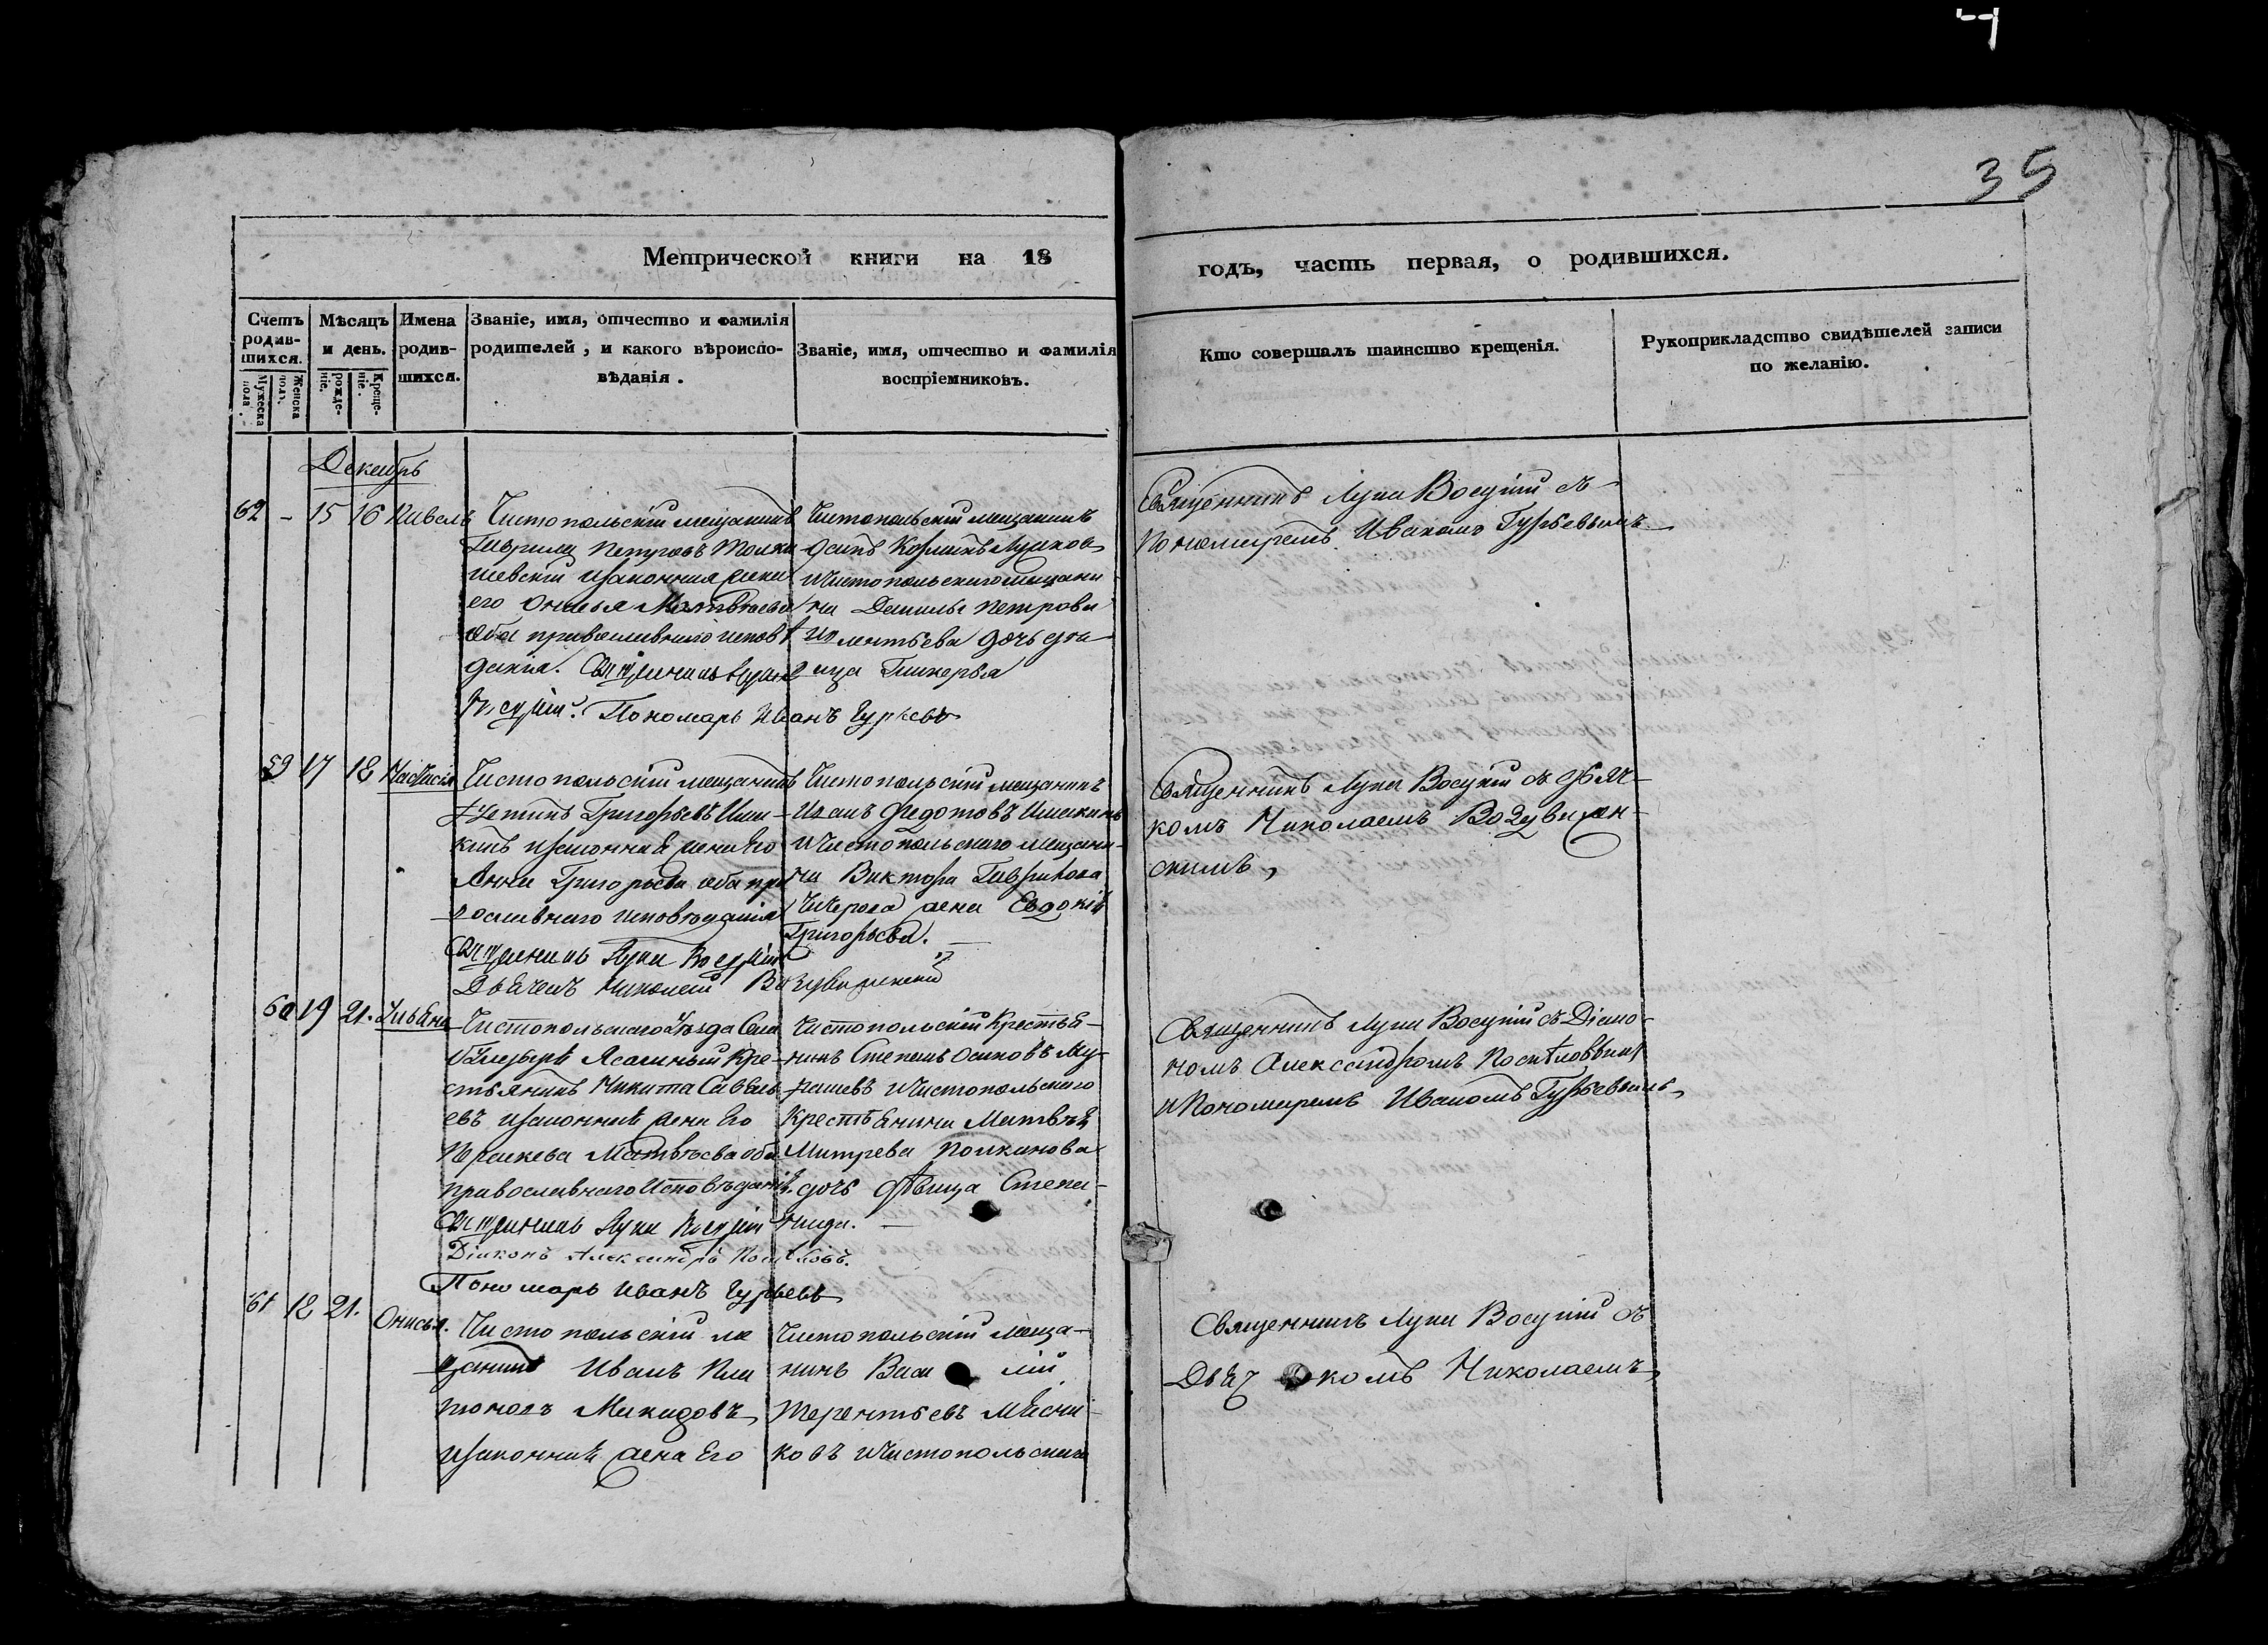 35
Метрической книги на 18
годъ, часть первая, о родившихся.
Счетъ родив-шихся.
Мужеска пола.
Женска полъ.
Мѣсяцъ и день.
рожде-ніе.
Креще-ніе.
Имена родив-шихся.
Званіе, имя, отчество и фамилія
родителей, и какого вѣроиспо-
вѣданія.
Званіе, имя, отчество и фамилія
воспріемниковъ.
Кто совершалъ таинство крещенія.
Рукоприкладство свидѣтелей записи
по желанію.
Декабрь
62 - 15 16
Чистопольскій мещанинъ
Гаврила Петровъ
его Онисья Матвѣева
оба православнаго исповѣ
данія. Священникъ Лука
Пономарь Иванъ Гурьевъ
Чистопольскій мещанинъ
и Чистопольскаго мещани
на Данилы Петрова
дочь дѣви
ца Гликерья
Священникъ Лука съ
пономаремъ Иваномъ Гурьевымъ
59 17 18 Настасія
Чистопольскій мещанинъ
Григорьевъ Шиш-
кинъ и законная жена его
Анна Григорьева оба пра
вославнаго исповѣданія
Священникъ Лука
Дьячекъ Николай Воздвиженскій
Чистопольскій мещанинъ
Иванъ Федотовъ Шишкинъ
и Чистопольскаго мещани-
на Виктора Гаврилова
жена Евдокія
Григорьева.
Священникъ Лука съ дьяч-
комъ Николаемъ Воздвижен-
скимъ
60 19 21. Ульяна
Чистопольскаго Уѣзда Села
Ясашный Кре-
стьянинъ Никита Савель
евъ и законная жена Его
Прасковья Матвѣева оба
православнаго Исповѣданія.
Священникъ Лука
Діаконъ Александръ Поспѣловъ.
Пономарь Иванъ Гурьевъ
Чистопольскій Крестья-
нинъ Степанъ Осиповъ Му-
рашевъ и Чистопольскаго
Крестьянина Матвѣя
Митрева Полканова
дочь дѣвица Степа-
нида.
Священникъ Лука съ Діако-
номъ Александромъ Поспѣловымъ
и Пономаремъ Иваномъ Гурьевымъ
61 18 21. Онисья.
Чистопольскій ме
щанинъ Иванъ Пла
тоновъ
и законная жена Его
Чистопольскій меща-
нинъ Васи лій
Терентьевъ Мясни-
ковъ и Чистопольскаго
Священникъ Лука съ
Дьяч комъ Николаемъ